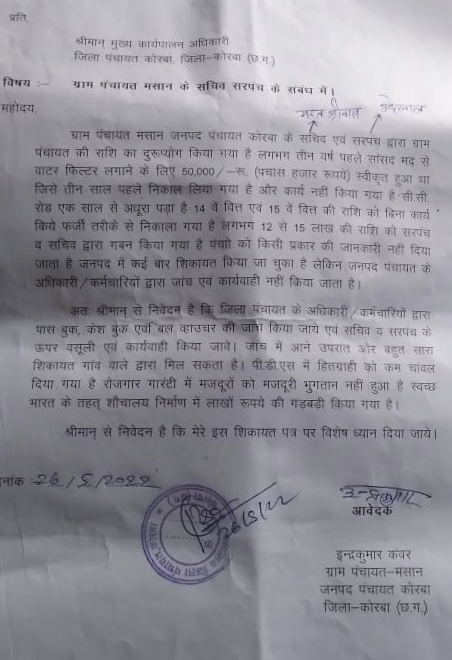 प्रति,
श्रीमान् मुख्य कार्यपालन अधिकारी
जिला पंचायत कोरबा, जिला–कोरबा (छ.ग.)
विषय :– ग्राम पंचायत मसान के सचिव सरपंच के संबंध में।
महोदय,
ग्राम पंचायत मसान जनपद पंचायत कोरबा के सचिव एवं सरपंच द्वारा ग्राम
पंचायत की राशि का दुरूप्योग किया गया है लगभग तीन वर्ष पहले सांसद मद से
वाटर फिल्टर लगाने के लिए 50,000/–रू. (पचास हजार रूपये) स्वीकृत हुआ था
जिसे तीन साल पहले निकाल लिया गया है और कार्य नही किया गया है सी.सी.
रोड एक साल से अधूरा पड़ा है 14 वें वित्त एवं 15 वें वित्त की राशि को बिना कार्य
किये फर्जी तरीके से निकाला गया है लगभग 12 से 15 लाख की राशि को सरपंच
व सचिव द्वारा गबन किया गया है पंचाो को किसी प्रकार की जानकारी नही दिया
जाता है जनपद में कई बार शिकायत किया जा चुका है लेकिन जनपद पंचायत के
अधिकारी/कर्मचारियों द्वारा जांच एवं कार्यवाही नहीं किया जाता है।
अतः श्रीमान से निवेदन है कि जिला पंचायत के अधिकारी/कर्मचारियों द्वारा
पास बुक, केश बुक एवों बल व्हाउचर की जांच किया जाये एवं सचिव व सरपंच के
ऊपर वसूली एवं कार्यवाही किया जावे। जांच में आने उपरांत ओर बहुत सारा
शिकायत गांव वाले द्वारा मिल सकता है। पी.डी.एस में हितग्राही को कम चांवल
दिया गया है रोजगार गारंटी में मजदूरों को मजदूरी भुगतान नहीं हुआ है स्वच्छ
भारत के तहत् शौचालय निर्माण में लाखों रूपये की गडबडी किया गया है।
श्रीमान् से निवेदन है कि मेरे इस शिकायत पत्र पर विशेष ध्यान दिया जाये।
नांक :26/5/2022
आवेदक
इन्द्रकुमार कंवर
ग्राम पंचायत–मसान
जनपद पंचायत कोरबा
जिला–कोरबा (छ.ग.)